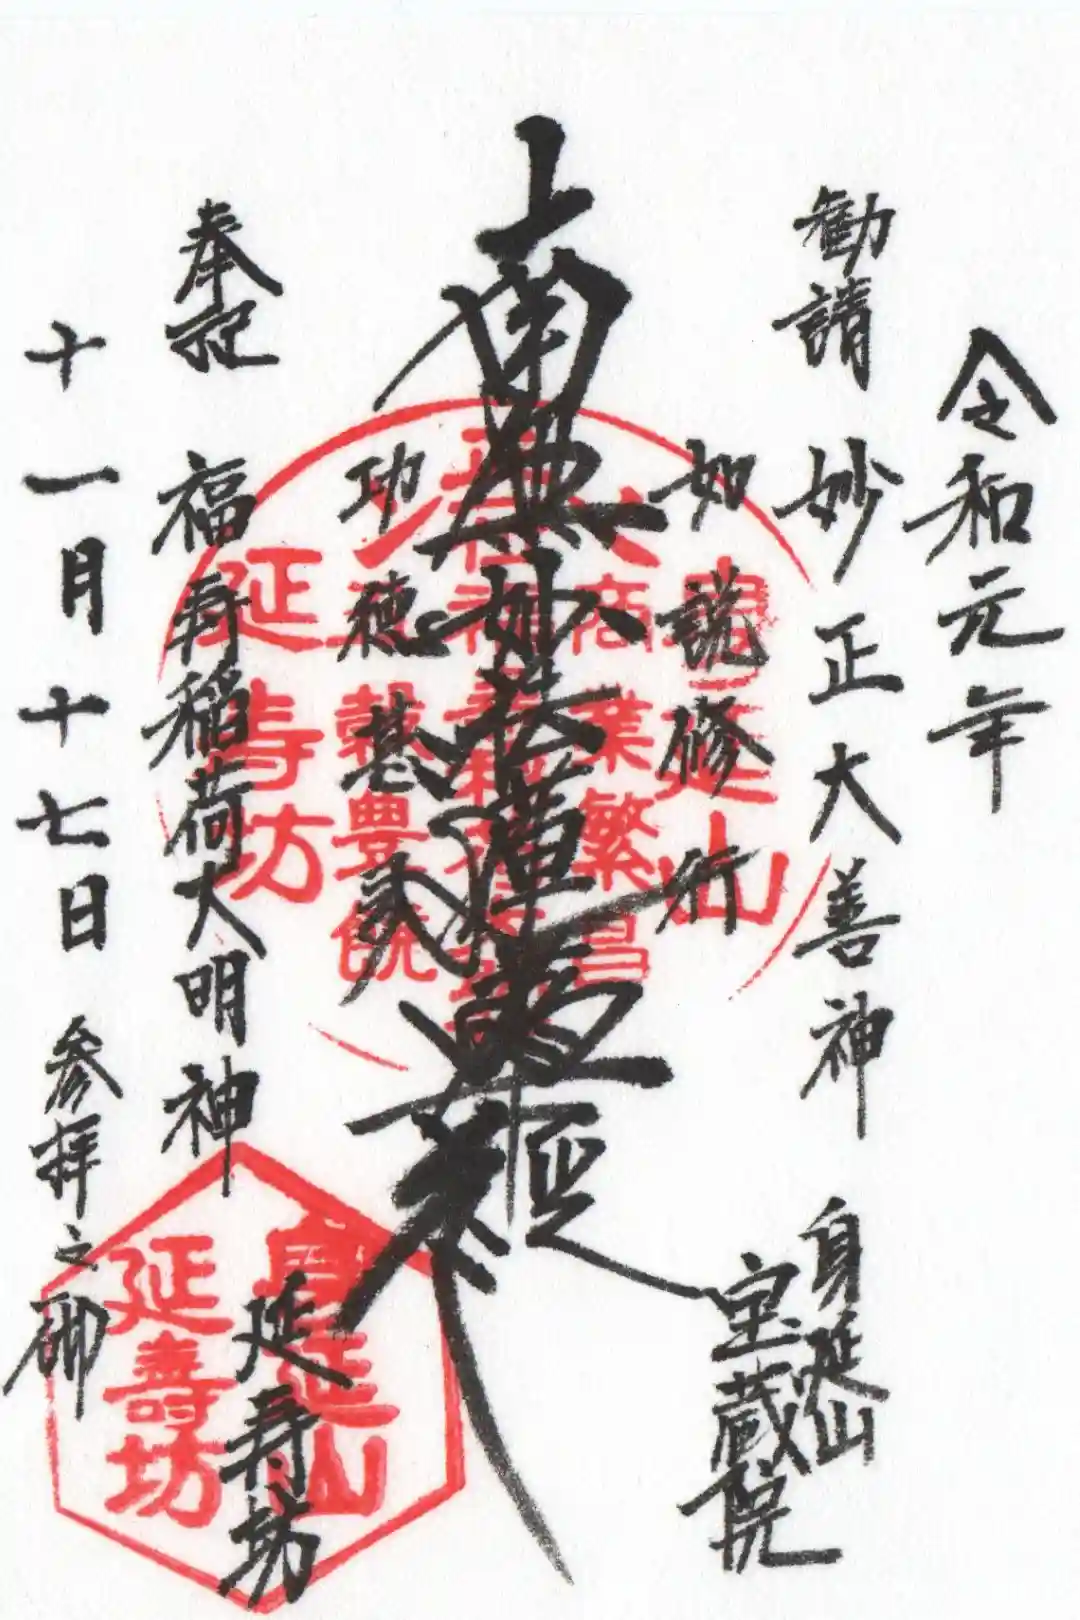 令和元年
勧請 妙正大善神
身延山
宝蔵院
如説修行
南無妙法蓮華経
功徳甚多
奉記 福寿稲荷大明神
延寿坊
十一月十七日 参拝之砌
身延山
商業繁昌
穀豊饒
延壽坊
身延山
延壽坊